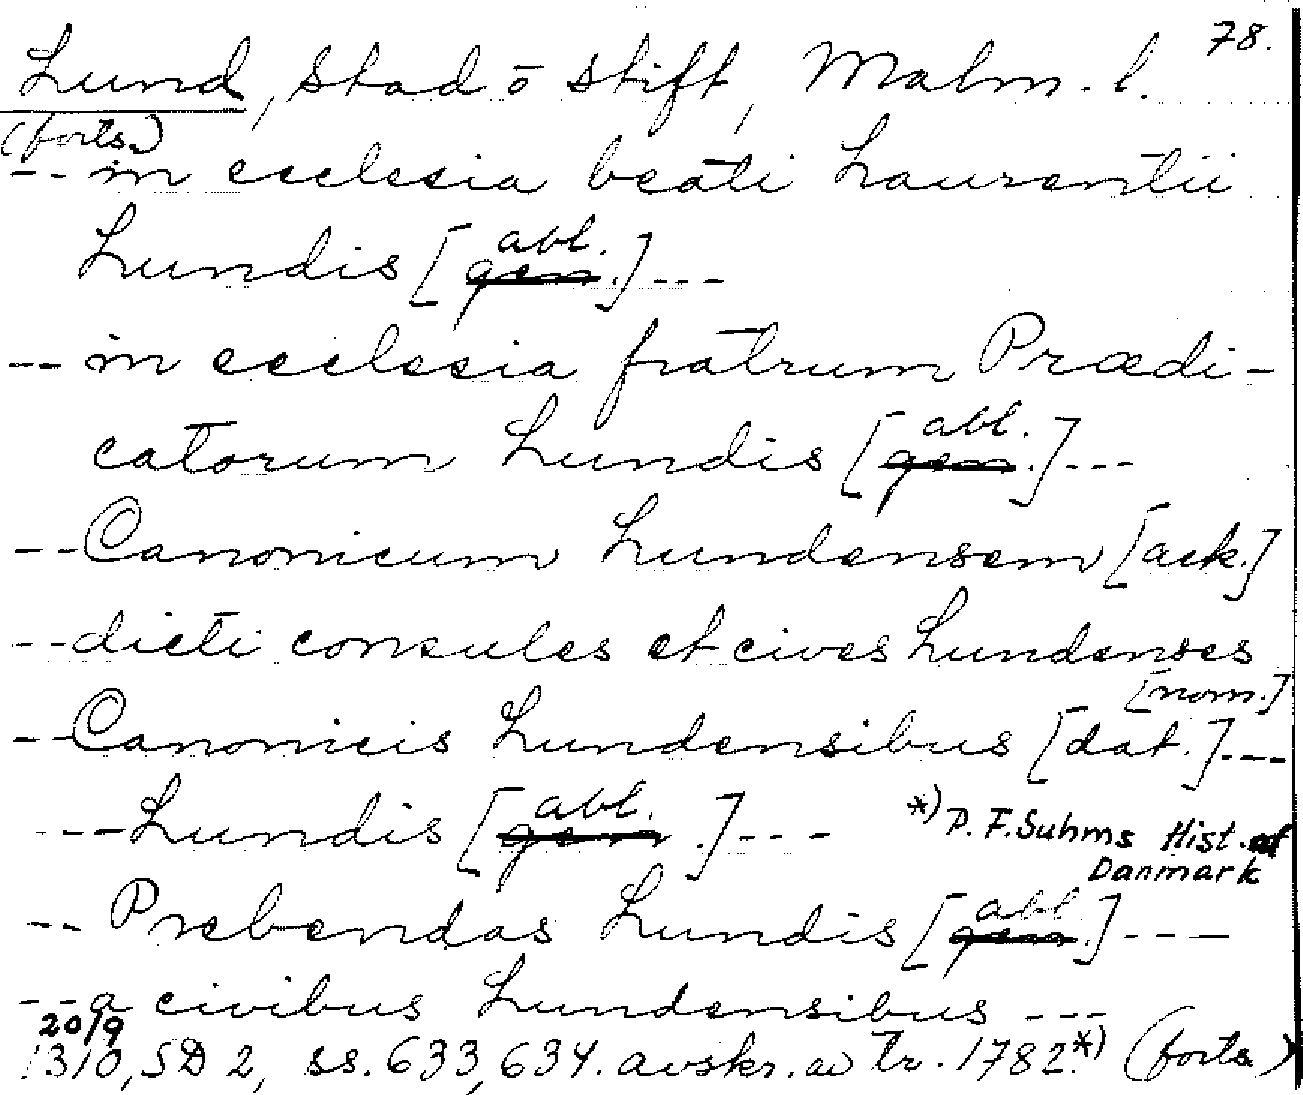 78.
Lund, stad o stift, Malm. l.
(forts.)
-- in ecclesia beati Laurentii
Lundis [gen. abl.] ---
-- in ecclesia fratrum Prædi-
catorum Lundis [gen. abl.] ---
-- Canonicum Lundensem [ack.]
-- dicti consules et cives Lundenses
[nom.]
-- Canonicis Lundensibus [dat.] ---
--- Lundis [gen. abl.] ---
*) P. F. Suhms Hist. af
Danmark
-- Prebendas Lundis [gen. abl.] ---
-- a civibus Lundensibus ---
20/9
1310, SD 2, ss. 633, 634. avskr. av tr. 1782 *) (forts.)